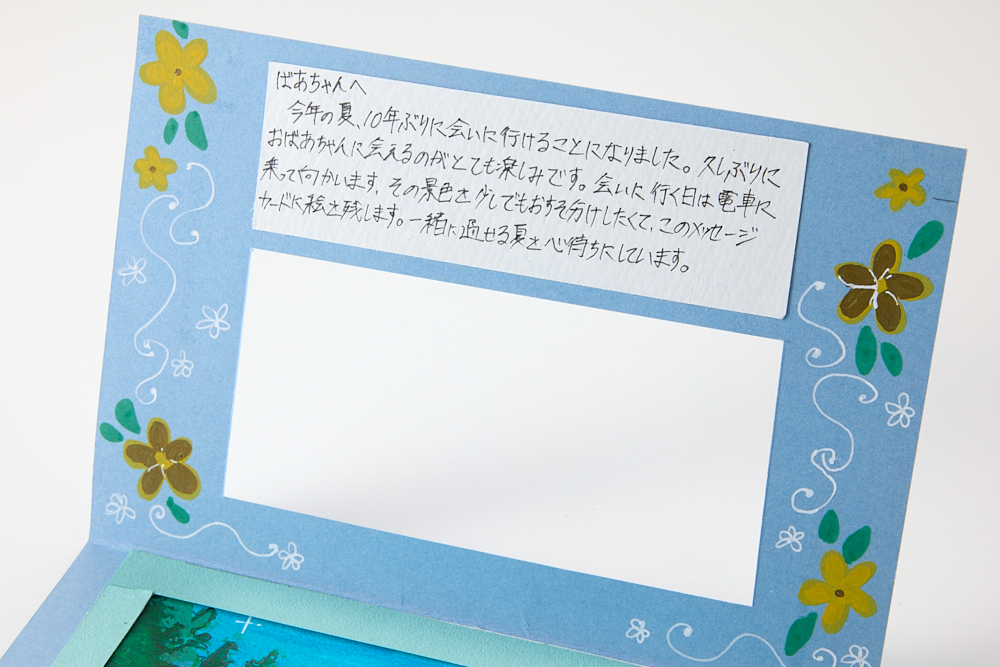 ばあちゃんへ
今年の夏、10年ぶりに会いに行けることになりました。久しぶりに
おばあちゃんに会えるのがとても楽しみです。会いに行く日は電車に
乗って向かいます。その景色を少しでもおすそ分けしたくて、このメッセージ
カードに絵を残します。一緒に過せる夏を心待ちにしています。